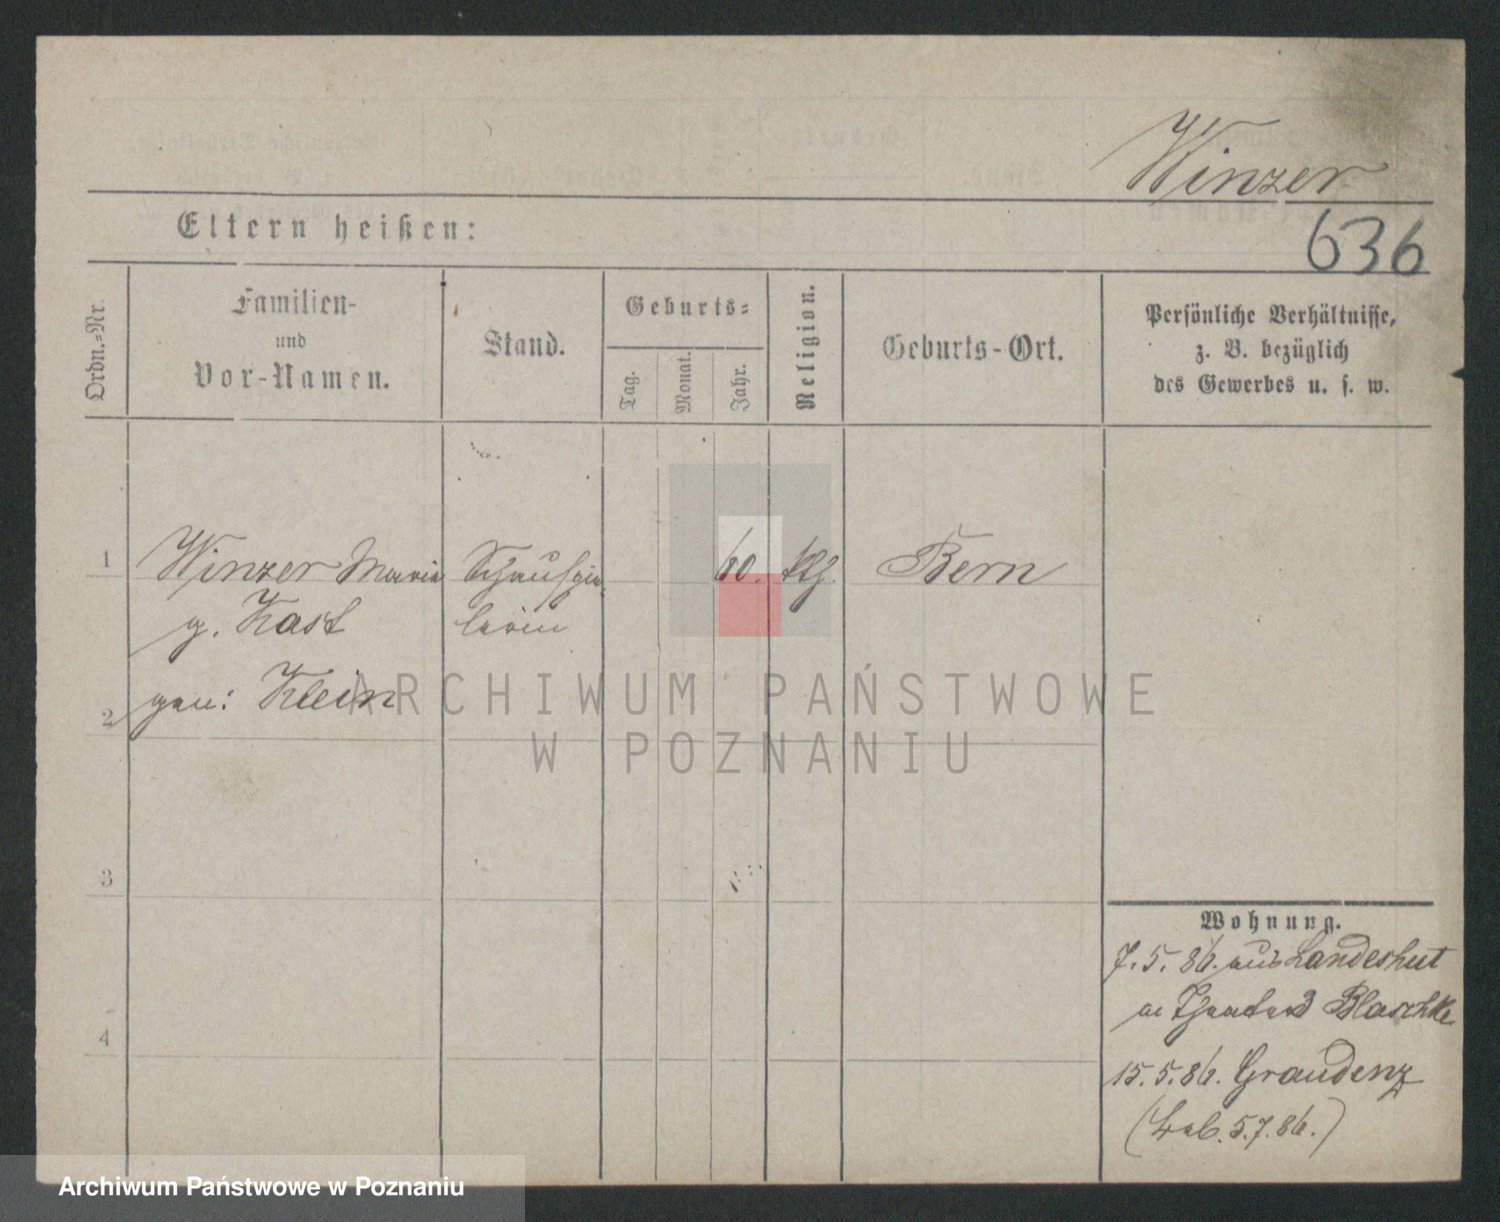 Winzer
636
Eltern heißen:
Ordn.-Nr.
Familien-
und
Vor-Namen.
Stand.
Geburts-
Tag.
Monat.
Jahr.
Religion.
Geburts-Ort.
Persönliche Verhältnisse,
z. B. bezüglich
des Gewerbes u. s. w.
1
Winzer Maria
g. Kast
gen: Klein
Schauspie-
lerin
60.
kth.
Bern
2
3
4
Wohnung.
7. 5. 86. aus Landeshut
Blaschke
15. 5. 86. Graudenz
5. 7. 86.)
ARCHIWUM PAŃSTWOWE
W POZNANIU
Archiwum Państwowe w Poznaniu